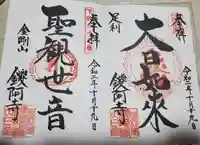 奉拝
令和二年十月十九日
大日如来
足利
鑁阿寺
奉拝
令和二年十月十九日
聖観世音
金剛山
鑁阿寺